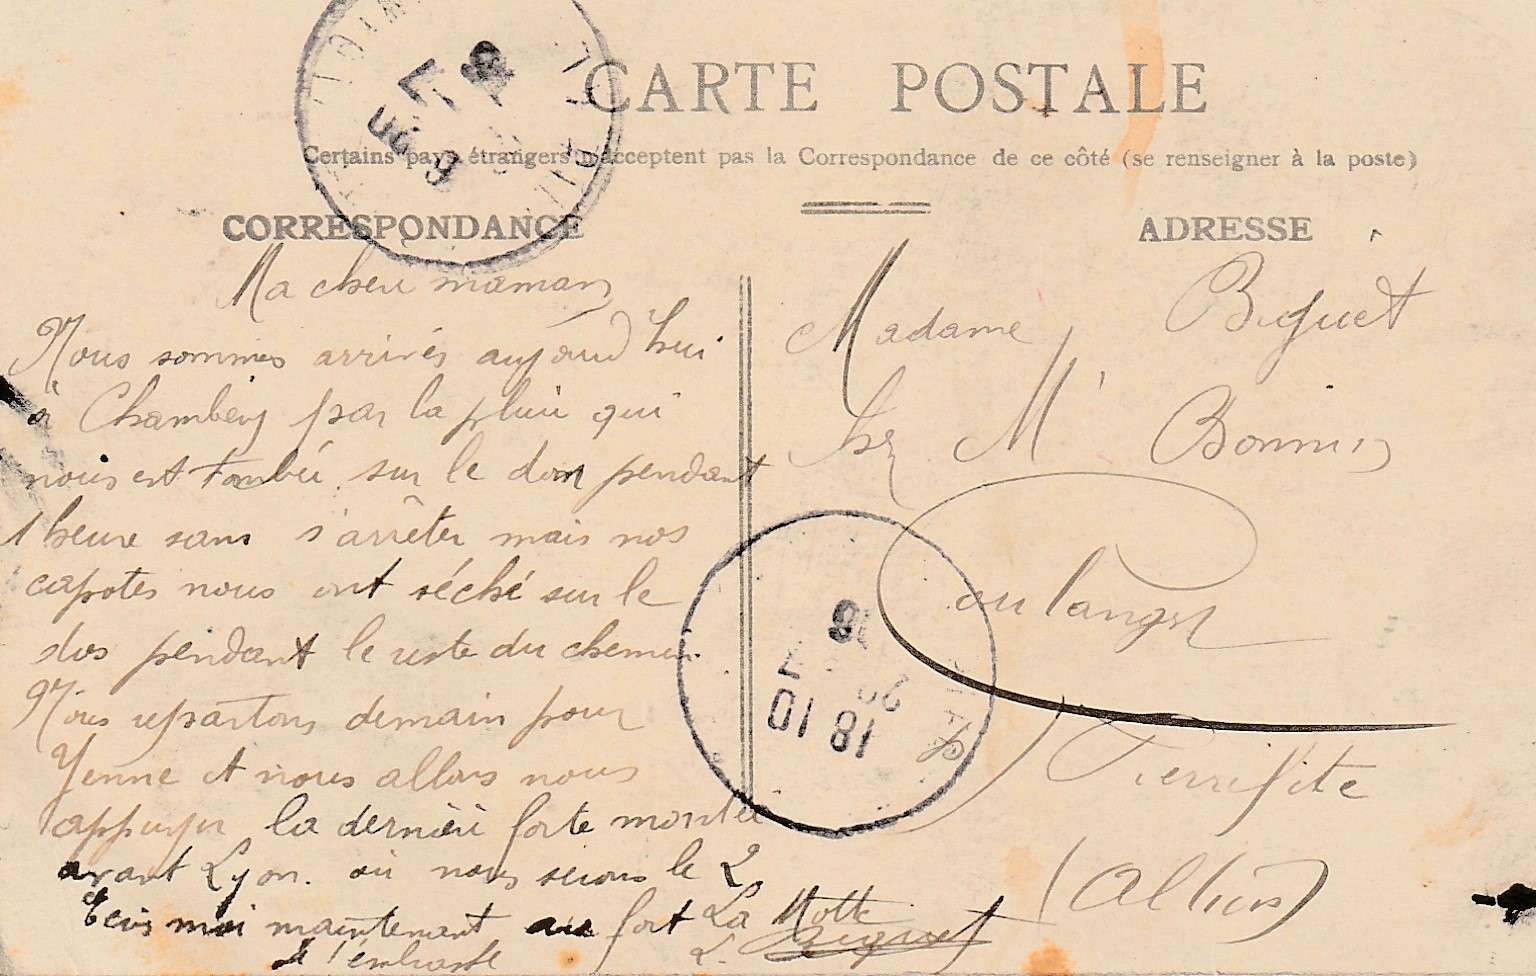 CARTE POSTALE
Certains pays étrangers n'acceptent pas la Correspondance de ce côté (se renseigner à la poste)
CORRESPONDANCE
Ma chere maman
Nous sommes arrivés aujourd'hui
à Chambéry par la pluie qui
nous est tombée sur le dos pendant
1 heure sans s'arrêter mais nos
capotes nous ont séché sur le
dos pendant le reste du chemin
Nous repartons demain pour
Yenne et nous allons nous
appuyer la dernière forte montée
avant Lyon. où nous serons le 2
Ecris moi maintenant au fort La Motte
Je t'embrasse
L. Biguet
ADRESSE
Madame Biguet
chez Mr Bonnin
Coulanges
Pierrefite
(Allier)
18 10